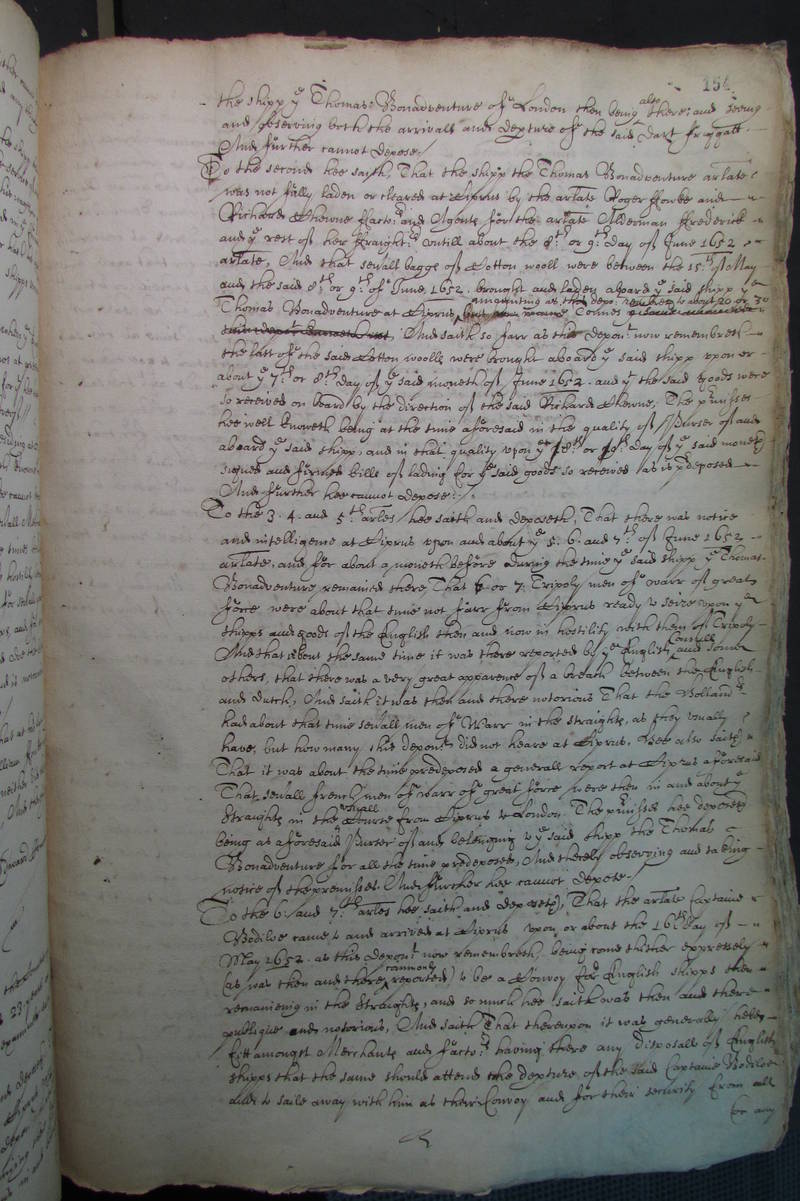 154
the shipp ye Thomas Bonadventure of London then being also there: and seeing
and observing both the arrivall and depture of the said Dart ffriggatt.
And further cannot depose./
To the second hee saith, That the shipp the Thomas Bonadventure arlate
was not fully laden or cleared at Ciprus by the arlate Roger ffowke and
Richard Chowne ffactors and Agents for the arlate Alderman ffrederick
and ye rest of her ffraighters untill about the 8th or 9th day of June 1652
arlate, And that severall baggs of Cotton wooll were between the 15th of May
and the said 8th or 9th of June 1652. brought and laden aboard ye said shipp ye
Thomas Bonadventure at Ciprus, amounting as this depot to about 20 or 30
Tonnes
And saith so farr as this deponent now remembreth
the last of the said Cotton woolls were brought aboard ye said shipp upon or
about ye 7th or 8th day of ye said moneth of June 1652. and yt the said goods were
so received on board by the direction of the said Richard Chowne, The premisses
hee well knoweth being at the time aforesaid in the quality of Purser of and
aboard ye said shipp, and in that quality upon ye 18th or 19th day of ye said moneth
signed and firmed bills of lading for ye said goods so received as is predeposed
And further hee cannot depose:/.
To the 3. 4. and 5th arles hee saith and deposeth, That there was notice
and intelligence at Ciprus upon and about ye 5. 6. and 7th of June 1652
arlate, and for about a moneth before during the time ye said shipp ye Thomas
Bonadventure remained there That 6 or 7. Tripoly men of warr of great
force were about that time not farr from Ciprus ready to seize upon ye
shipps and goods of the English then and now in hostility with them of Tripoly
And that about the same time it was there reported by ye English Consull and some
others, that there was a very great apparence of a breach between the English
and dutch, And saith it was then and there notorious That the Hollanders
had about that time severall men of Warr in the straights, as they usually
have, but how many this deponent did not heare at Ciprus. Hee also saith
That it was about the time predeposed a generall report at Ciprus aforesaid
That severall french men of warr of great force were then in and about ye
Straights in the usuall Course from Ciprus to London The premisses hee deposeth
being as aforesaid Purser of and belonging to ye said shipp the Thomas
Bonadventure for all the time predeposed, And thereby observing and taking
notice of the premisses. And further hee cannot depose./
To the 6. and 7th arles hee saith and deposeth, That the arlate Captaine
Bodiloe came to and arrived at Ciprus upon or about the 16th day of
May 1652. as this deponent now remembreth, being come thither expressely
(as was then and there commonly reported) to be a Convoy for English shipps then
remaineing in the Straights, and so much hee saith was then and there
publique and notorious, And saith That thereupon it was generally held
fitt amongst Merchants and ffactors having there any disposall of English
shipps that the same should attend the depture of the said Captaine Bodiloe
and to saile away with him as their Convoy and for their security from all
or any